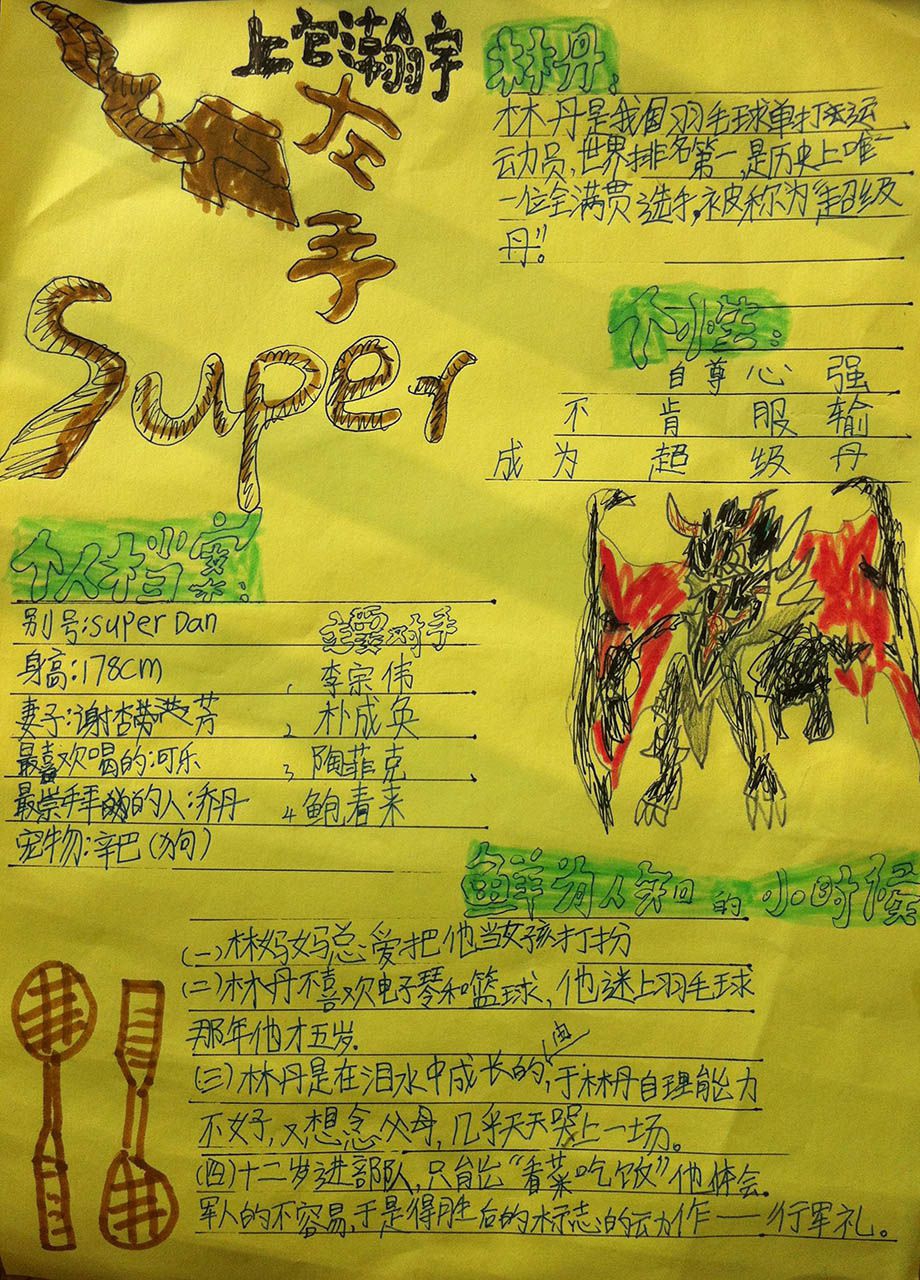 上官瀚宇
左
手
Super
林丹:
林丹是我国羽毛球单打运
动员,世界排名第一,是历史上唯
一位全满贯选手,被称为“超级
丹”。
个性:
自尊心强
不肯服输
成为超级丹
个人档案:
别号:super Dan
身高:178cm
妻子:谢杏芳
最喜欢喝的:可乐
最崇拜的人:乔丹
宠物:辛巴(狗)
主要对手
1、李宗伟
2、朴成奂
3、陶菲克
4、鲍春来
鲜为人知的小时候
(一)林妈妈总爱把他当女孩打扮
(二)林丹不喜欢电子琴和篮球,他迷上羽毛球
那年他才五岁.
(三)林丹是在泪水中成长的,由于林丹自理能力
不好,又想念父母,几乎天天哭上一场。
(四)十二岁进部队,只能“看菜吃饭”他体会
军人的不容易,于是得胜后的标志的动作——行军礼。